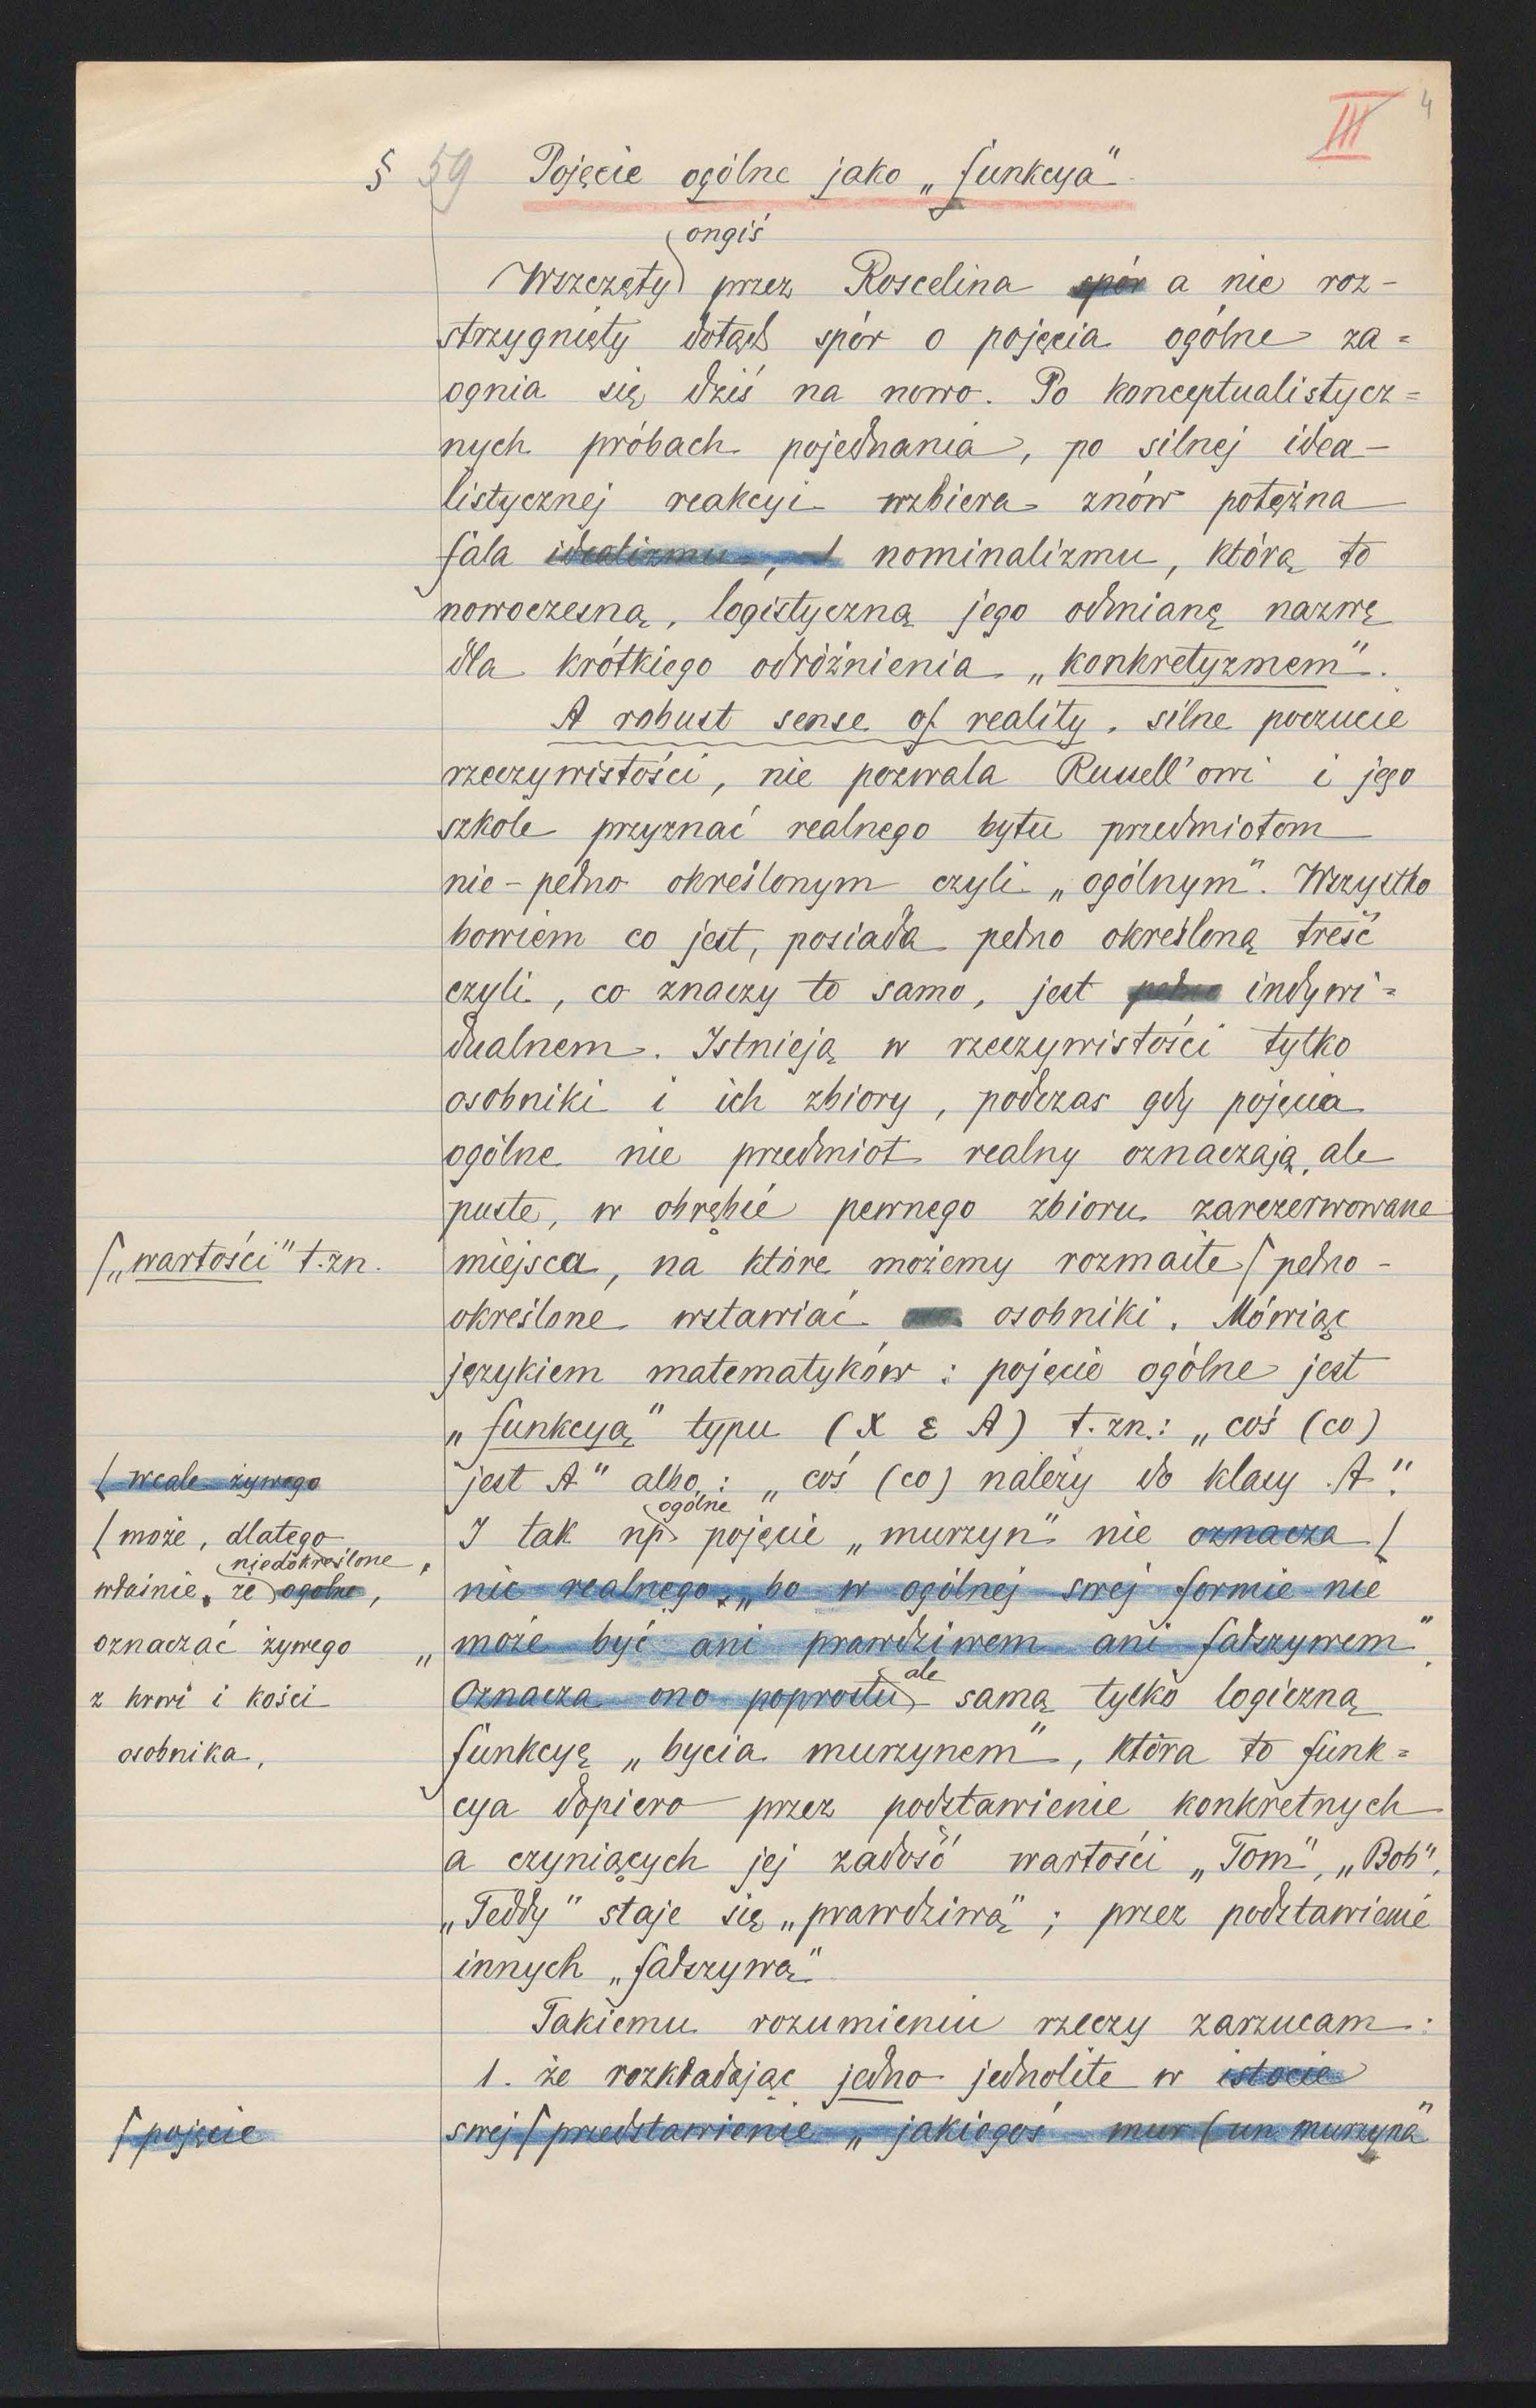 III 4
§ 59 Pojęcie ogólne jako „funkcya".
ongiś
Wszczęty przez Roscelina spór a nie roz-
strzygnięty dotąd spór o pojęcia ogólne za=
ognia się dziś na nowo. Po konceptualistycz=
nych próbach pojednania, po silnej idea-
listycznej reakcyi wzbiera znów potężna
fala idealizmu, nominalizmu, którą to
nowoczesną, logistyczną jego odmianę nazwę
dla krótkiego odróżnienia „konkretyzmem".
A robust sense of reality, silne poczucie
rzeczywistości, nie pozwala Russell'owi i jego
szkole przyznać realnego bytu przedmiotom
nie-pełno określonym czyli „ogólnym". Wszystko
bowiem co jest, posiada pełno określoną treść
czyli, co znaczy to samo, jest pełno indywi=
dualnem. Istnieją w rzeczywistości tylko
osobniki i ich zbiory, podczas gdy pojęcia
ogólne nie przedmiot realny oznaczają, ale
puste, w obrębie pewnego zbioru zarezerwowane
miejsca, na które możemy rozmaite / pełno-
/ „wartości" t.zn.
określone wstawiać osobniki. Mówiąc
językiem matematyków: pojęcie ogólne jest
„funkcyą" typu (X ε A) t.zn.: „coś (co)
jest A" albo: „coś (co) należy do klasy A".
/ wcale żywego
ogólne
I tak np pojęcie „murzyn" nie oznacza /
/ może, dlatego
niedokreślone
właśnie, że ogólne,
oznaczać żywego
z krwi i kości
osobnika,
nic realnego, „bo w ogólnej swej formie nie
może być ani prawdziwem ani fałszywem".
Oznacza ono poprostu ale samą tylko logiczną
funkcyę „bycia murzynem", która to funk=
cya dopiero przez podstawienie konkretnych
a czyniących jej zadość wartości „Tom", „Bob",
„Teddy" staje się „prawdziwą"; przez podstawienie
innych „fałszywą".
Takiemu rozumieniu rzeczy zarzucam:
1. że rozkładając jedno jednolite w istocie
swej / przedstawienie „jakiegoś mur (un murzyna"
/ pojęcie